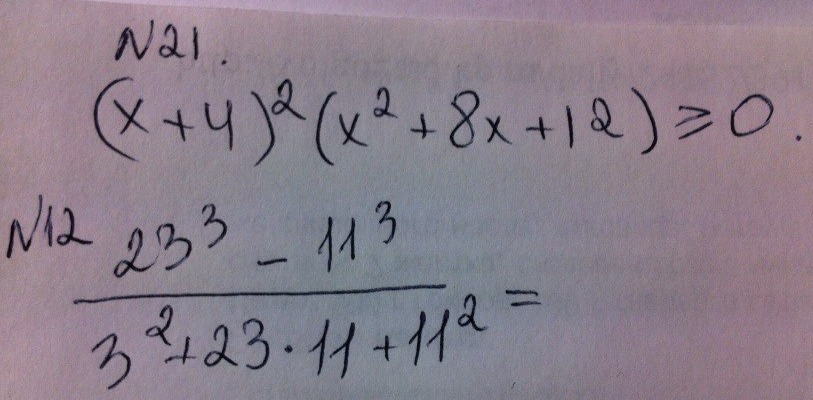 N21.
(x+4)²(x²+8x+12)≥0.
N12
23³ - 11³
3²+23·11+11² =